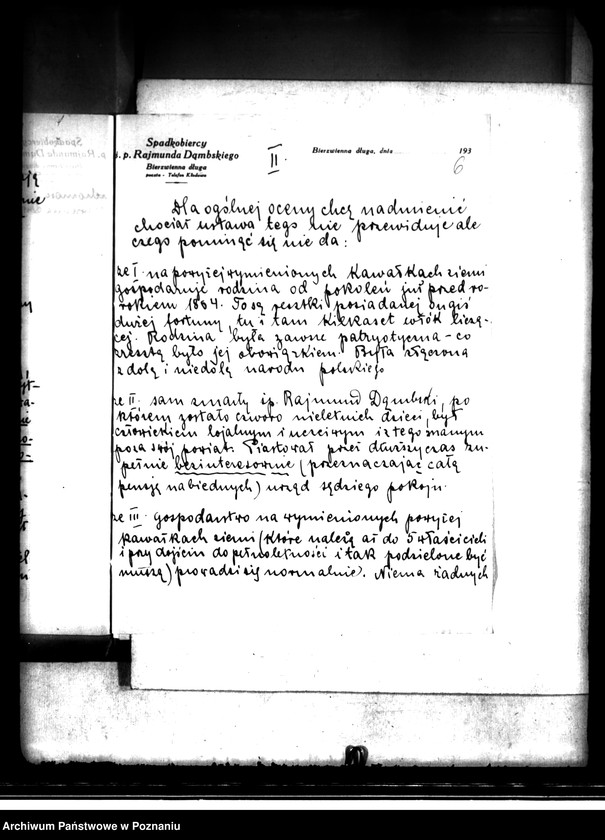 Spadkobiercy
ś. p. Rajmunda Dąmbskiego
Bierzwienna długa
poczta - Telefon Kłodawa
II.
Bierzwienna długa, dnia 193
6
Dla ogólnej oceny chcę nadmienić
chociaż ustawa tego nie przewiduje ale
czego pominąć się nie da:
że I. na powyżej wymienionych kawałkach ziemi
gospodaruje rodzina od pokoleń już przed ro-
rokiem 1864. To są resztki posiadanej ongiś
dużej fortuny tu i tam kilkaset włók liczą-
cej. Rodzina była zawsze patryotyczna - co
zresztą było jej obowiązkiem. Była złączona
z dolą i niedolą narodu polskiego
że II. sam zmarły śp. Rajmund Dąmbski, po
którem zostało czworo nieletnich dzieci, był
człowiekiem lojalnym i uczciwym i z tego znanym
poza swój powiat. Piastował przez dłuższy czas zu-
pełnie bezinteresownie (przeznaczając całą
pensję na biednych) urząd sędziego pokoju.
że III. gospodarstwo na wymienionych powyżej
kawałkach ziemi (które należą aż do 5 właścicieli
i przy dojściu do pełnoletności i tak podzielone być
muszą) prowadzi się normalnie. Niema żadnych
Archiwum Państwowe w Poznaniu